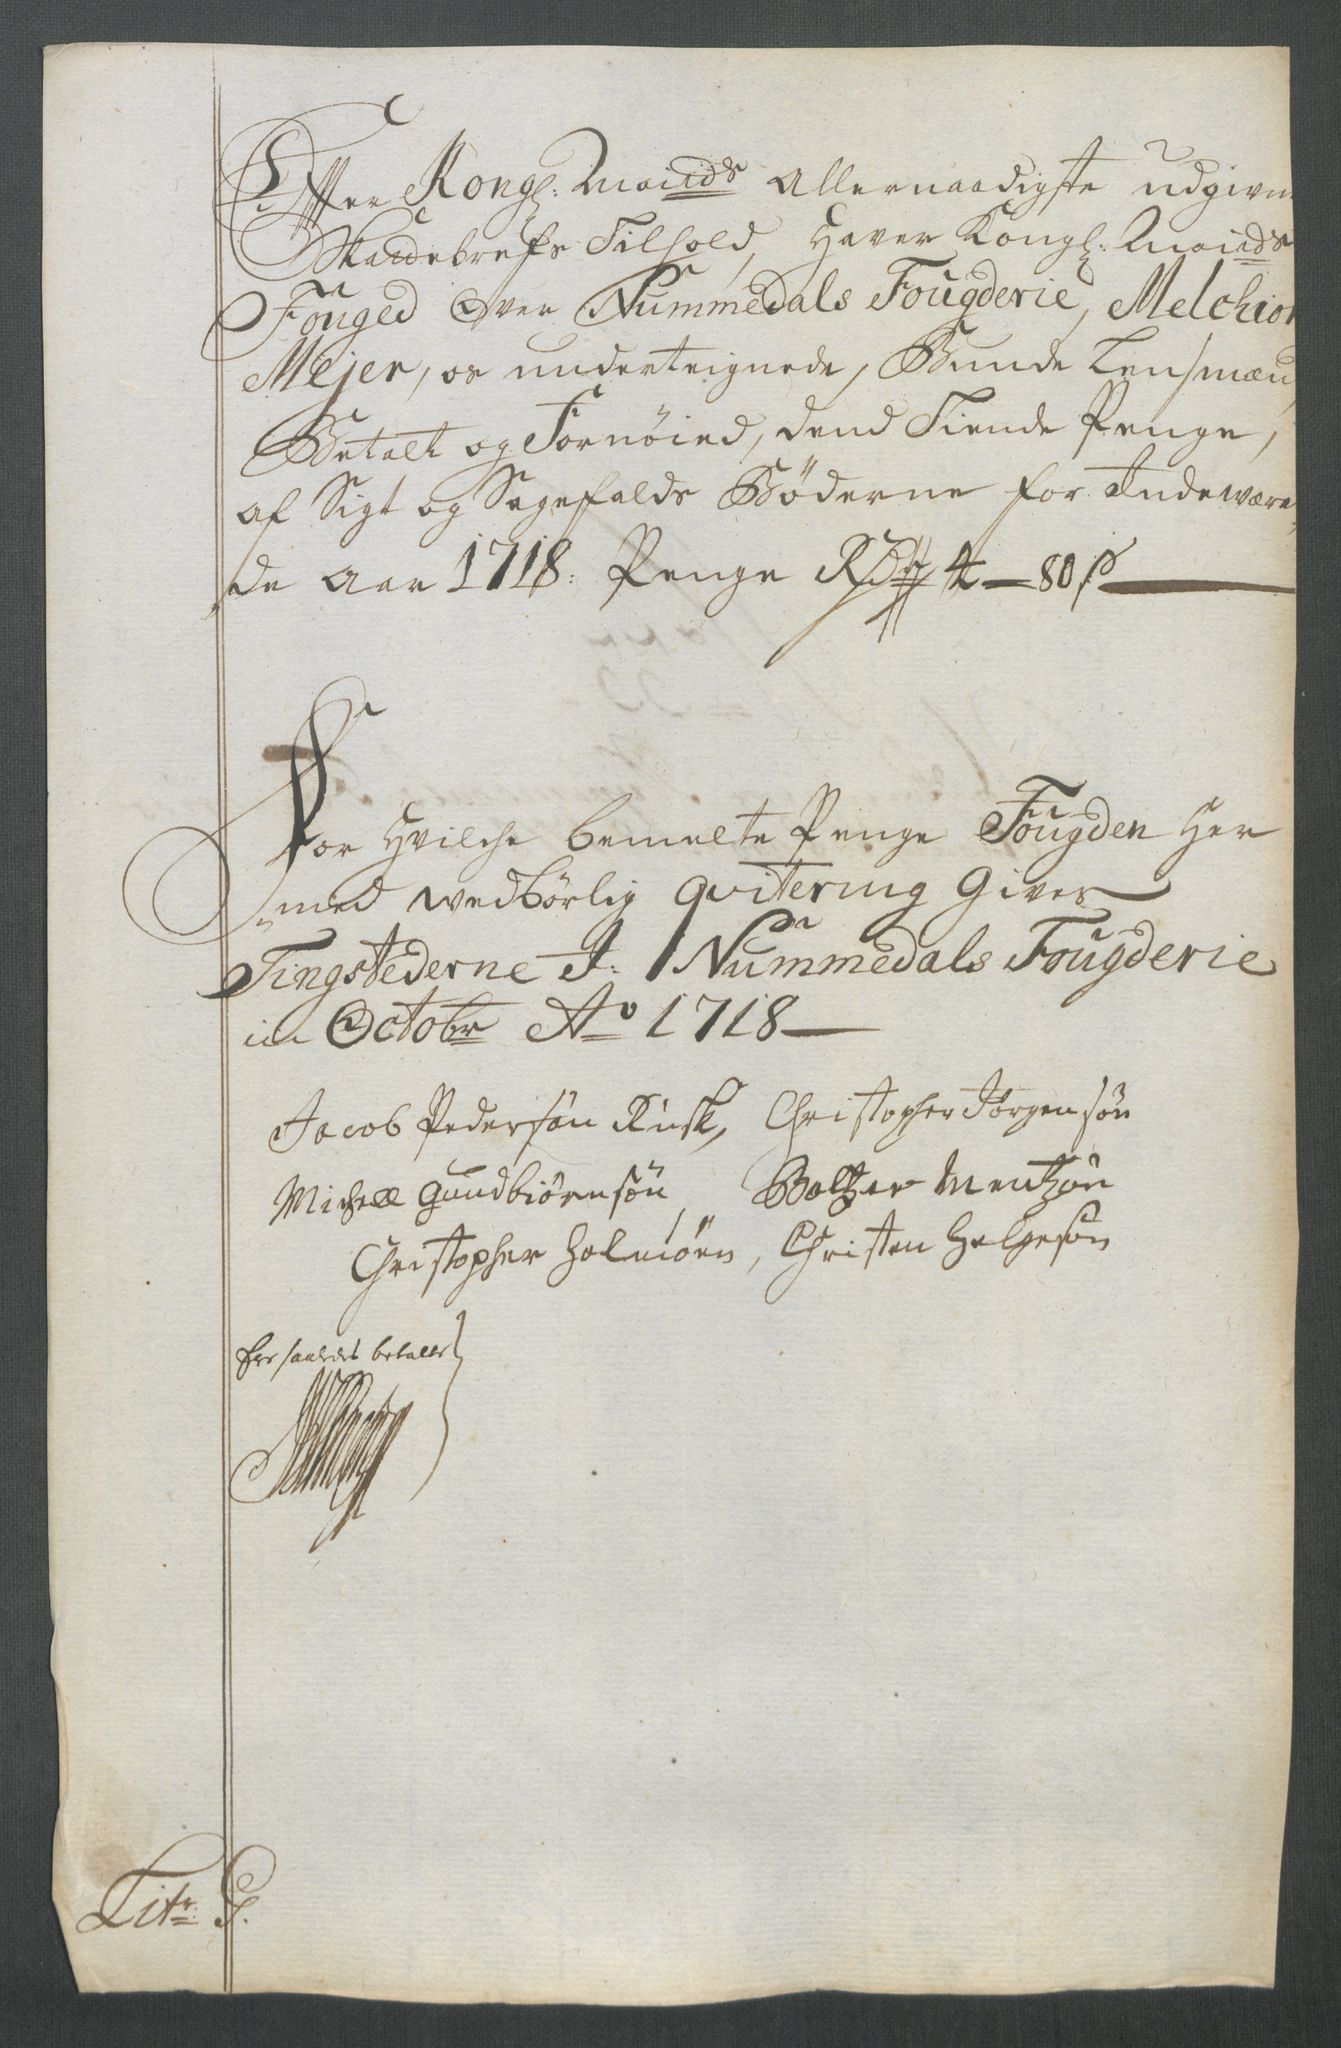 Effter Kongl: Maÿts Allernaadigste udgivne
Skattebrefs Tilhold, Haver Kongl: Maÿts
Fouged Over Nummedals Fougderie, Melchior
Mejer, os underteignede, Bunde Lensmæn,
Betalt og Fornöied, dend Tiende Penge,
af Sigt og Sagefalds Böderne for Indewæren,
de Aar 1718: Penge Rdr 4 — 80 s
For Hvilche bemelte Penge Fougden Her
med wedbörlig qvitering Gives
Tingstederne I: Nummedals Fougderie
in Octobr Ao 1718
Jacob Pedersön Rusk, Christopher Jörgensön
Michell Gundbiörnsön, Baltzer Mentzön
Christopher Holmöen, Christen Helgesön
Er saaledes betalt
Litr: G.